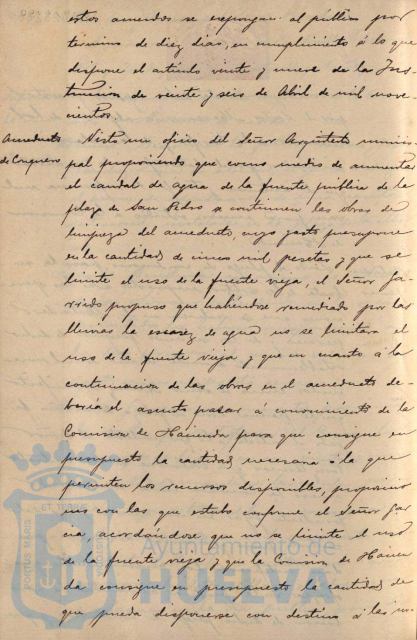 estos acuerdos se expongan al público por
termino de diez dias, en cumplimiento á lo que
dispone el artículo veinte y nueve de la Ins-
trucción de veinte y seis de Abril de mil nove-
cientos.
Acueducto Visto un oficio del Señor Arquitecto munici-
de Conquero pal proponiendo que como medio de aumentar
el caudal de agua de la fuente pública de la
plaza de San Pedro se continuen las obras de
limpieza del acueducto, cuyo gasto presupone
en la cantidad de cinco mil pesetas y que se
limite el uso de la fuente vieja, el Señor Ga-
rrido propuso que habiéndose remediado por las
lluvias la escasez de agua no se limitara el
uso de la fuente vieja y que en cuanto á la
continuación de las obras en el acueducto de-
beria el asunto pasar á conocimiento de la
Comision de Hacienda para que consigne en
presupuesto la cantidad necesaria ó la que
permitan los recursos disponibles, proposicio-
nes con las que estubo conforme el Señor Gar-
cia, acordándose que no se limite el uso
de la fuente vieja y que la Comision de Hacien-
da consigne en presupuesto la cantidad de
que pueda disponerse con destino á las
Ayuntamiento de
HUELVA
PORTUS MARIS
ET TERRAE